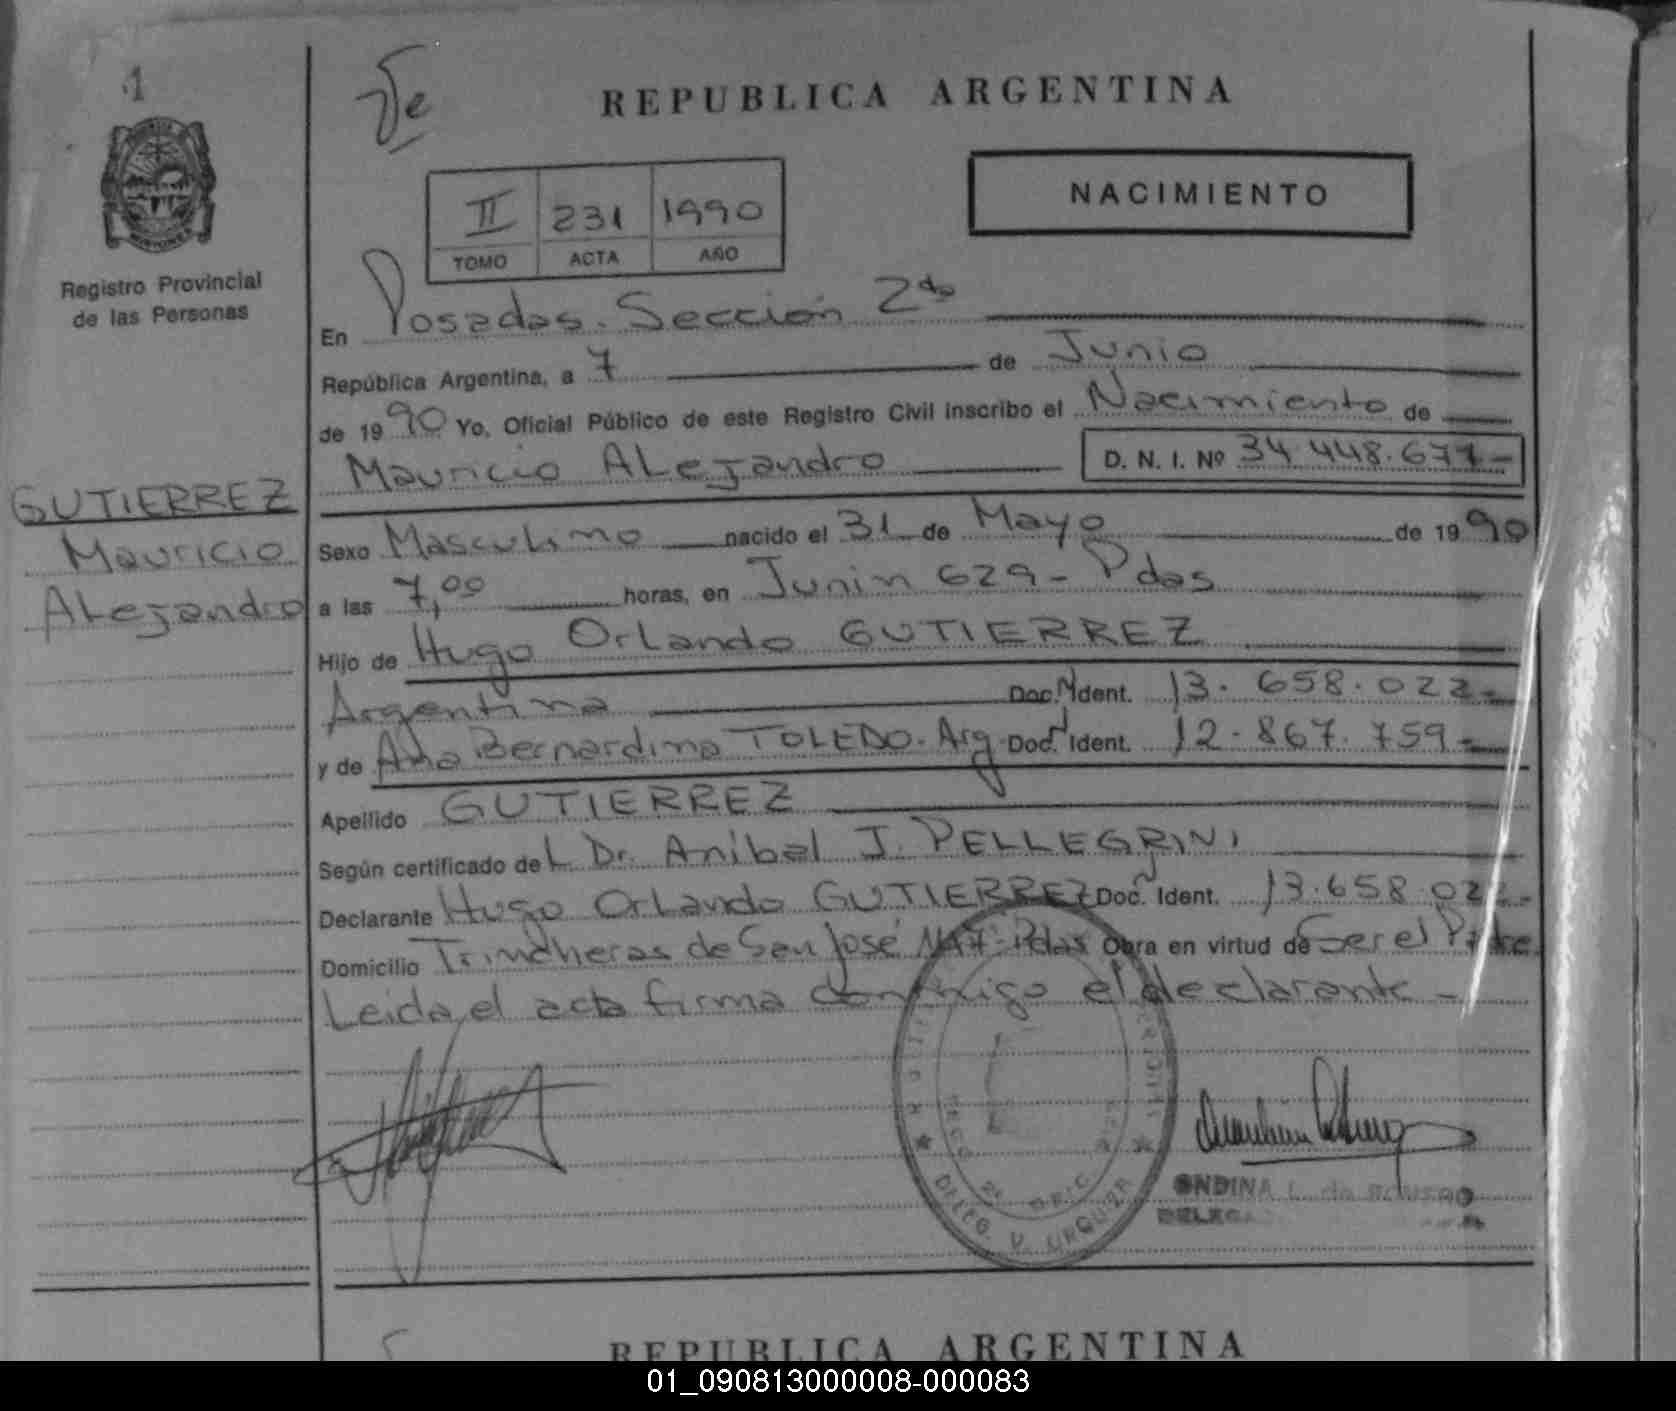 1
REPUBLICA ARGENTINA
NACIMIENTO
II 231 1990
TOMO ACTA AÑO
MISIONES
Registro Provincial
de las Personas
En Posadas. Sección 2da
República Argentina, a 7 de Junio
de 1990 Yo, Oficial Público de este Registro Civil inscribo el Nacimiento de
Mauricio Alejandro D. N. I. Nº 34.448.677-
GUTIERREZ
Mauricio
Alejandro
Sexo Masculino nacido el 31 de Mayo de 1990
a las 7,00 horas, en Junin 629- Pdas
Hijo de Hugo Orlando GUTIERREZ
Argentina Doc. N Ident. 13.658.022-
y de Ana Bernardina TOLEDO. Arg. Doc. N Ident. 12.867.759-
Apellido GUTIERREZ
Según certificado del Dr. Anibal J. PELLEGRINI
Declarante Hugo Orlando GUTIERREZ Doc. N Ident. 13.658.022-
Domicilio Trincheras de San José Pdas Obra en virtud de Ser el Padre
Leida el acta firma conmigo el declarante-
DPTO. V. URQUIZA
ONDINA L. de ROMERO
REPUBLICA ARGENTINA
01_090813000008-000083